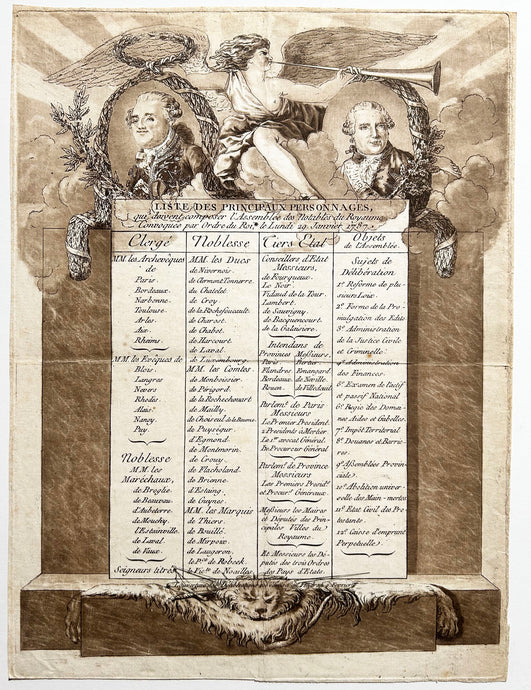 LISTE DES PRINCIPAUX PERSONNAGES,
qui doivent composer l'Assemblée des Notables du Royaume
Convoquée par Ordre du Roi, le Lundi 29 Janvier 1787.
Clergé
MM. les Archevêques
de
Paris.
Bordeaux.
Narbonne.
Toulouse.
Arles.
Aix.
Rheims.
MM. les Evêques de
Blois.
Langres
Nevers
Rhodès
Alais.
Nancy.
Puy.
Noblesse
MM. les
Maréchaux,
de Broglie
de Beauvau
d'Aubeterre
de Mouchy.
de Laval.
de Vaux.
Seigneurs titrés
Noblesse
MM. les Ducs
de Nivernois.
de Clermont Tonnerre.
du Chatelet.
de Croy.
de la Rochefoucault
de Charost.
de Chabot.
de Harcourt.
de Laval.
de Luxembourg.
MM. les Comtes
de Monboissier
de Périgord.
de la Rochechouart
de Mailly.
de Choiseul de la Baume
de Puysegur
d'Egmond.
de Montmorin
de Crouy.
de Flachsland.
de Brienne
d'Estaing.
de Guynes.
MM. les Marquis
de Thiers.
de Bouillé.
de Mirpoix
de Langeron.
le Pce. de Robeck.
le Victe. de Noailles
Tiers Etat
Conseillers d'Etat
Messieurs,
de Fourqueux.
Le Noir.
Vidaud de la Tour.
Lambert.
de Sauvigny
de Bacquencourt.
de la Galaisiere.
Intendans de
Provinces Messieurs.
Paris Bertier
Flandres Esmangard
Bordeaux. de Neville.
Rouen. de Villedeuil
Parlemt. de Paris
Messieurs
Le Premier President.
2 Presidents à Mortier.
Le 1er. avocat Général.
Le Procureur Général
Parlemt. de Province
Messieurs
Les Premiers Présidts.
et Procurs. Généraux.
Messieurs les Maires
et Députés des Prin-
cipales Villes du
Royaume.
Et Messieurs les Dé-
putés des trois Ordres
des Pays d'Etats.
Objets
de l'Assemblée.
Sujets de
Délibération
1º Réforme de plu-
sieurs Loix.
2º Forme de la Pro-
mulgation des Edits
3º Administration
de la Justice Civile
et Criminelle
4º Administration
des Finances.
5º Examen de l'actif
et passif National
6º Regie des Doma-
nes Aides et Gabelles.
7º Impôt Territorial
8º Douanes et Barrie-
res.
9º Assemblée Provin-
ciale.
10º Abolition univer-
selle des Main-mortes
11º Etat Civil des Pro
testants.
12º Caisse d'emprunt
Perpetuelle